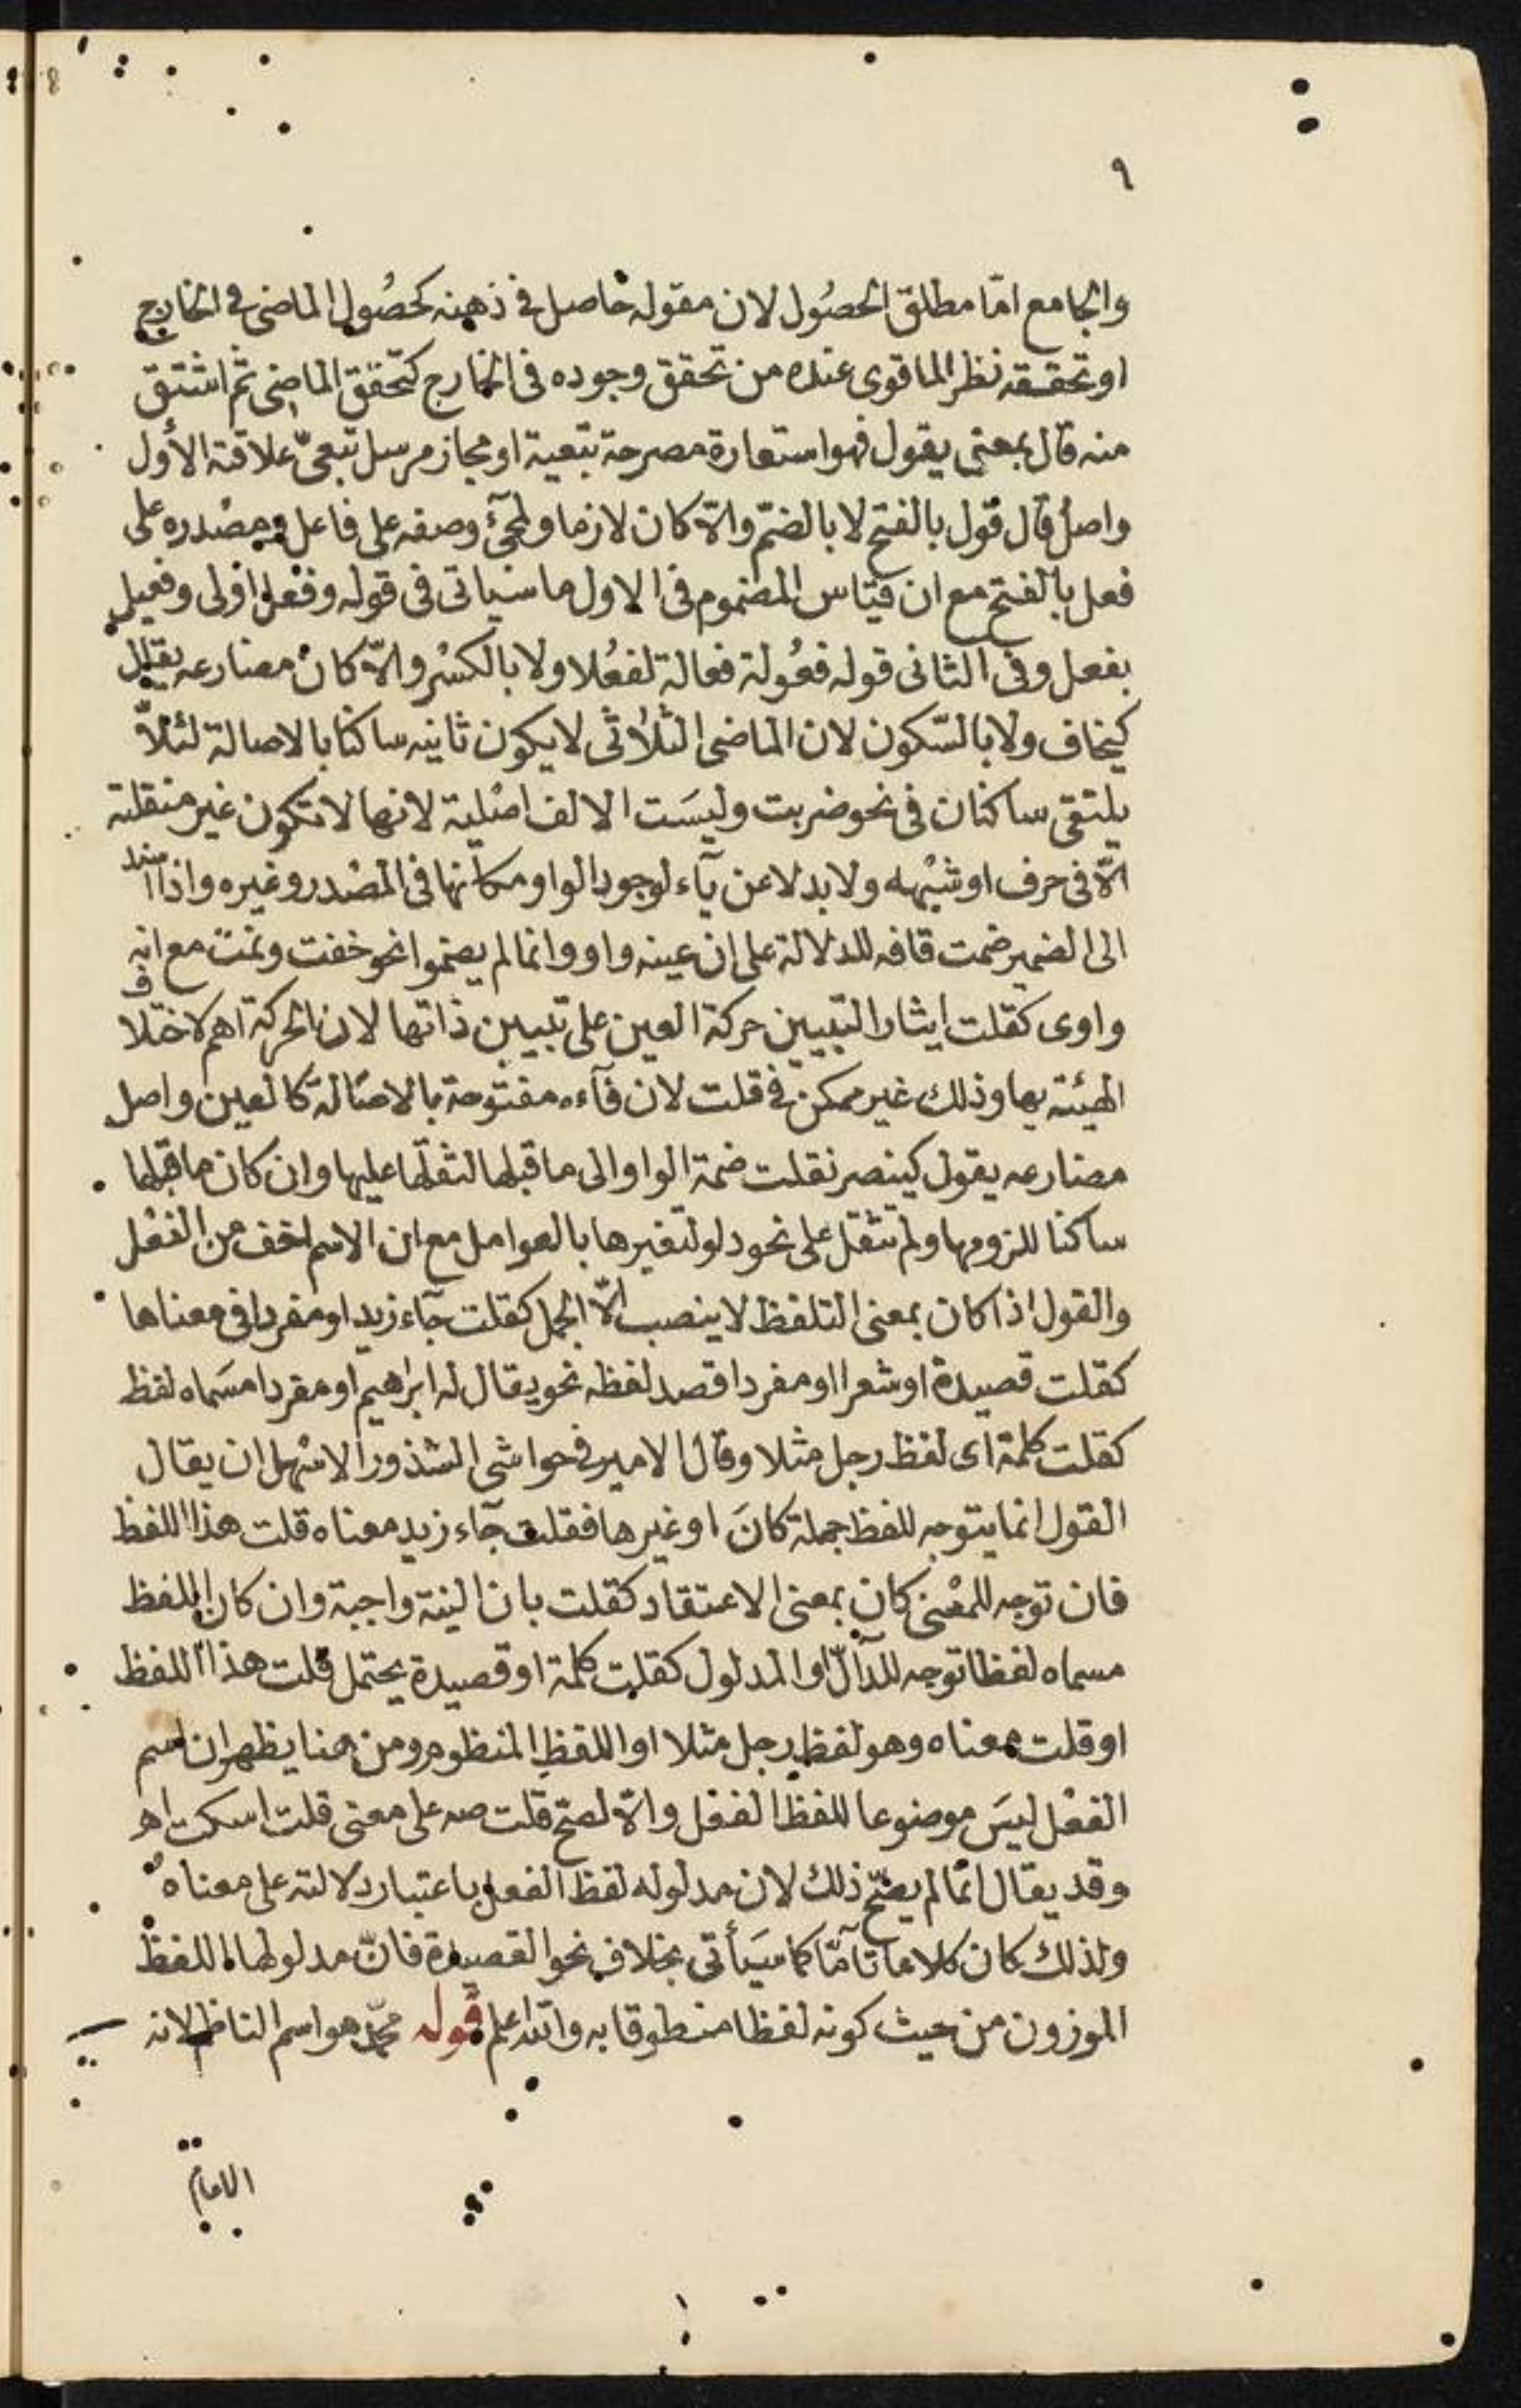 ٩
والجامع امّا مطلق الحصُول لان مقوله حاصل فى ذهنه كحصُول الماضى فى الخارج
او تحققه نظر الما قوى عنده من تحقق وجوده فى الخارج كتحقق الماضى ثم اشتق
منه قال بمعنى يقول فهو استعارة مصرحة تبعية او مجاز مرسل تبعىّ علاقته الأول
واصلُ قال قَول بالفتح لا بالضمّ والاّ كان لازما ولمجئ وصفه على فاعل ومصْدره على
فعل بالفتح مع ان قياس المضموم فى الاول ما سياتى فى قوله وفعْل اولى وفعيل
بفعل وفى الثانى قوله فعُولة فعالة لفعُلا ولا بالكسْر والاّ كانْ مضارعه يقال
كيخاف ولا بالسّكون لان الماضى الثلاُثى لا يكون ثانيه ساكنا بالاصالة لئلاّ
يلتقى ساكنان فى نحو ضربت وليسَت الالف اصْلية لانها لا تكون غير منقلبة
الاّ فى حرف او شبْهه ولا بدلا عن يآء لوجود الواو مكانها فى المصْدر وغيره واذا اسند
الى الضمير ضمت قافه للدلالة على ان عينه واو وانما لم يضموا نحو خفت ونمت مع انه
واوى كقلت ايثارا لتبيين حركة العين على تبيين ذاتها لان الحركة اهم لاختلاف
الهيئة بها وذلك غير ممكن فى قلت لان فآءه مفتوحة بالاصَالة كالعين واصل
مضارعه يقول كينصر نقلت ضمة الواو الى ما قبلها لثقلها عليها وان كان ما قبلها
ساكنا للزومها ولم تثقل على نحو دلو لتغيرها بالعوامل مع ان الاسم اخف من الفعْل
والقول اذا كان بمعنى التلفظ لا ينصب الاّ الجمل كقلت جآء زيد او مفردا فى معناها
كقلت قصيدة او شعرا او مفردا قصد لفظه نحو يقال له ابراهيم او مفردا مسَماه لفظ
كقلت كلمة اى لفظ رجل مثلا وقال الامير فى حواشى الشذور الاسْهل ان يقال
القول انما يتوجه للفظ جملة كانَ او غيرها فقلت جآء زيد معناه قلت هذا اللفظ
فان توجه للمعْنى كان بمعنى الاعتقاد كقلت بان النية واجبة وان كان اللفظ
مسماه لفظا توجه للدآلّ او المدلول كقلت كلمة او قصيدة يحتمل قلت هذا اللفظ
او قلت معناه وهو لفظ رجل مثلا او اللفظ المنظوم ومن هنا يظهر ان اسم
الفعْل ليسَ موضوعا للفظ الفعل والاّ لصحّ قلت صه على معنى قلت اسكت اه
وقد يقال انّما لم يصّح ذلك لان مدلوله لفظ الفعل باعتبار دلالته على معناه
ولذلك كان كلاما تآمّا كما سيَأتى بخلاف نحو القصيدة فانّ مدلولها اللفظ
الموزون من حيث كونه لفظا منطوقا به والله اعلم قوله محمّد هو اسم الناظم لانه
الامام